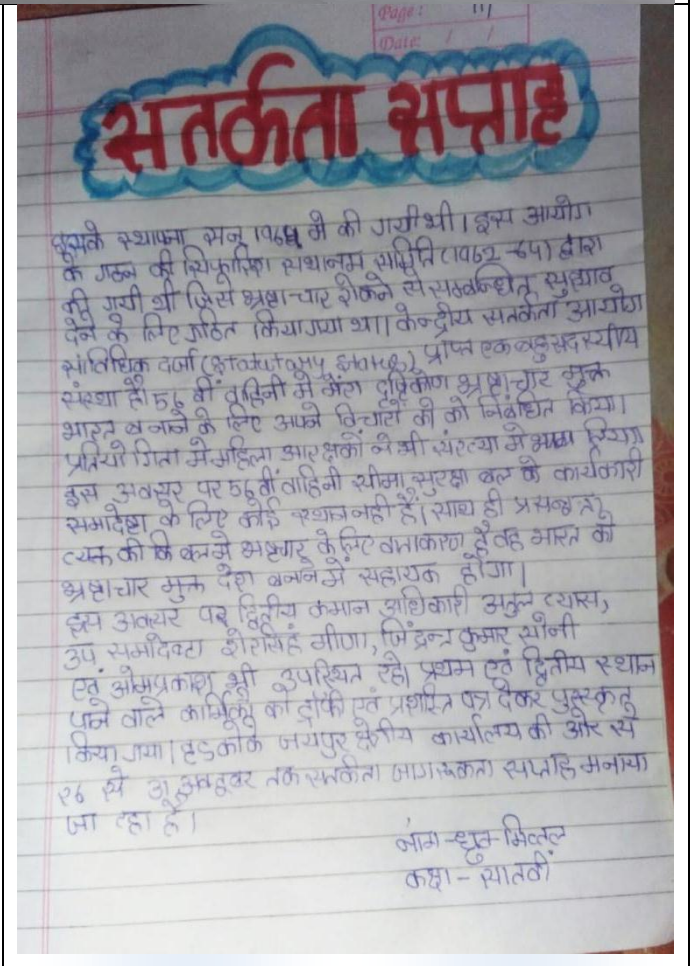 Page: 111
Date: / /
सतर्कता सप्ताह
इसके स्थापना सन् 1964 मे की गयी थी। इस आयोग
के गठन की सिफारिश सथानम समिति (1962-64) द्वारा
की गयी थी जिसे भ्रष्टा-चार रोकने से सम्बन्धित सुझाव
देने के लिए गठित कियागया था। केन्द्रीय सतर्कता आयोग
सांविधिक दर्जा (statutory status) प्राप्त एक बहुसदस्यीय
संस्था है। 56 वी वाहिनी मे मेरा दृष्टिकोण भ्रष्टाचार मुक्त
भारत बनाने के लिए अपने विचारो को को निबंधित किया।
प्रतियोगिता मे महिला आरक्षकों ने भी संख्या मे भाग लिया।
इस अवसर पर 56 वीं वाहिनी सीमा सुरक्षा बल के कार्यकारी
समादेष्टा के लिए कोई स्थान नही हैं। साथ ही प्रसन्नता
व्यक्त की कि बल मे के लिए है वह भारत को
भ्रष्टाचार मुक्त देश बनने में सहायक होगा।
इस अवसर पर द्वितीय कमान अधिकारी अतुल व्यास,
उप समादेष्टा शेरसिंह मीणा, जितेन्द्र कुमार सोनी
एवं ओमप्रकाश भी उपस्थित रहे। प्रथम एवं द्वितीय स्थान
पाने वाले कार्मिको को ट्रॉफी एवं प्रशस्ति पत्र देकर पुरस्कृत
किया गया। हडकोके जयपुर क्षेत्रीय कार्यालय की ओर से
२6 से 31 अक्टूबर तक सतर्कता जागरूकता सप्ताह मनाया
जा रहा है।
नाम - ध्रुव - मित्तल
कक्षा - सातवीं